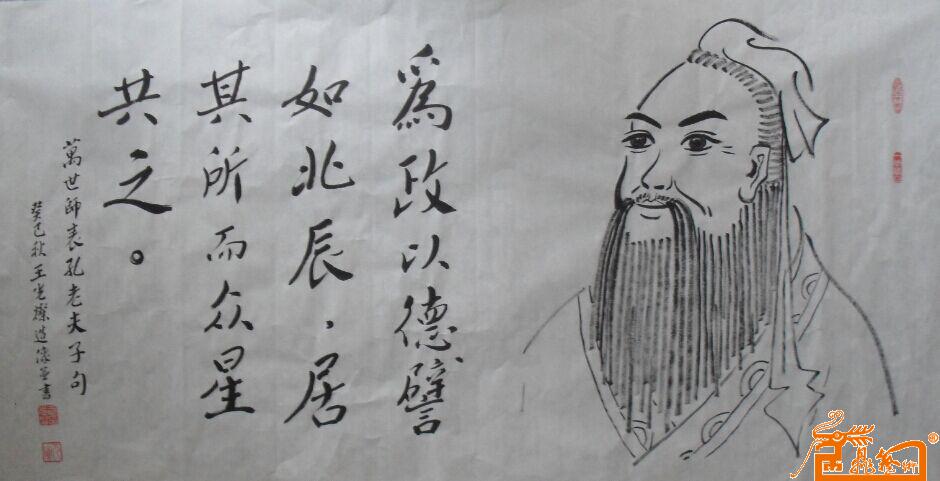 爲政以德譬
如北辰，居
其所而众星
共之。
萬世師表孔老夫子句
癸巳秋王光燦造像並書